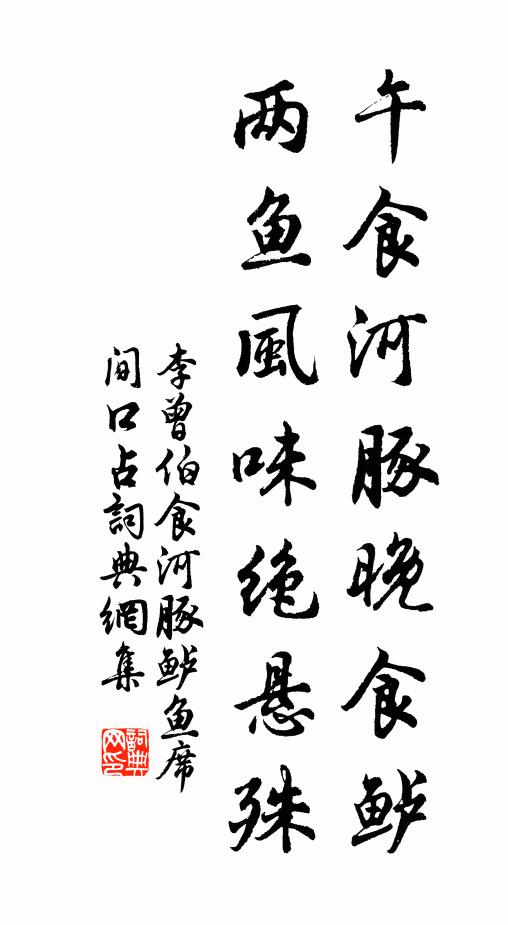 午食河豚晚食鲈
两鱼風味绝悬殊
李曾伯食河豚鲈鱼席
间口占詞典網集
詞典网印